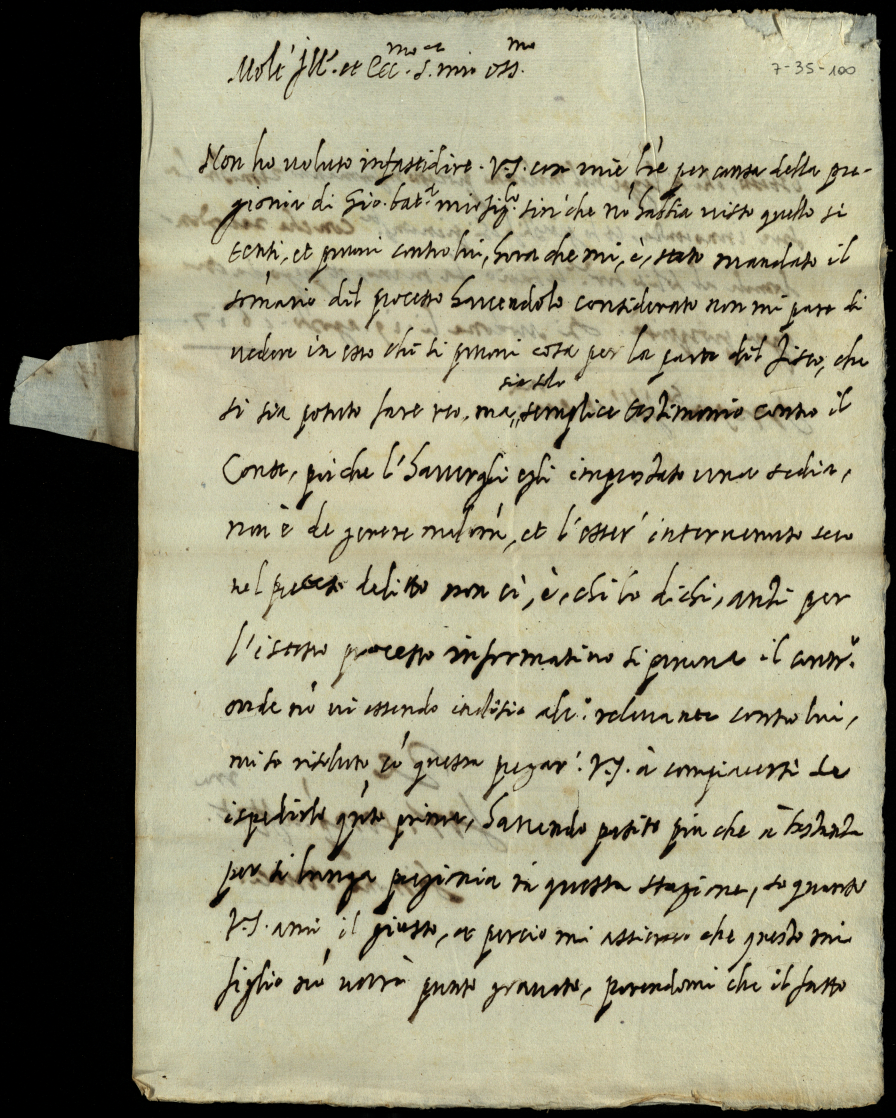 Molt' Ill.re et Ecc.mo S.r mio oss.mo
7-35-100
Non ho voluto infastidire V.S. con mie l're per causa della pre-
gionia di Gio. bat.a mio figl.o sin' che nō habbia visto quello si
tenti, et pruovi contro lui, hora che mi, è, stato mandato il
som̄ario dil processo havendolo considerato non mi pare di
vedere in esso che si pruovi cosa per la parte dil fisco, che
si sia potuto fare reo, ma sia solo semplice testimonio contro il
Conte, perche l'havergli egli imprestato una sedia,
non è de genere malorū, et l'esser' intervenuto seco
nel delitto non ci, è, chi lo dichi, anzi per
l'istesso processo informativo si pruova il contr.o
onde nō vi essendo inditio alc.o relevante contro lui,
mi so risoluto cō questa pregar' V.S. à compiacersi de
ispedirlo qn̄to prima, havendo patito piu che à bastanza
per si lunga pregionia in questa stagione, so quanto
V.S. ami il giusto, et percio mi assicuro che questo mio
figlio nō verrà punto gravato, parendomi che il fatto